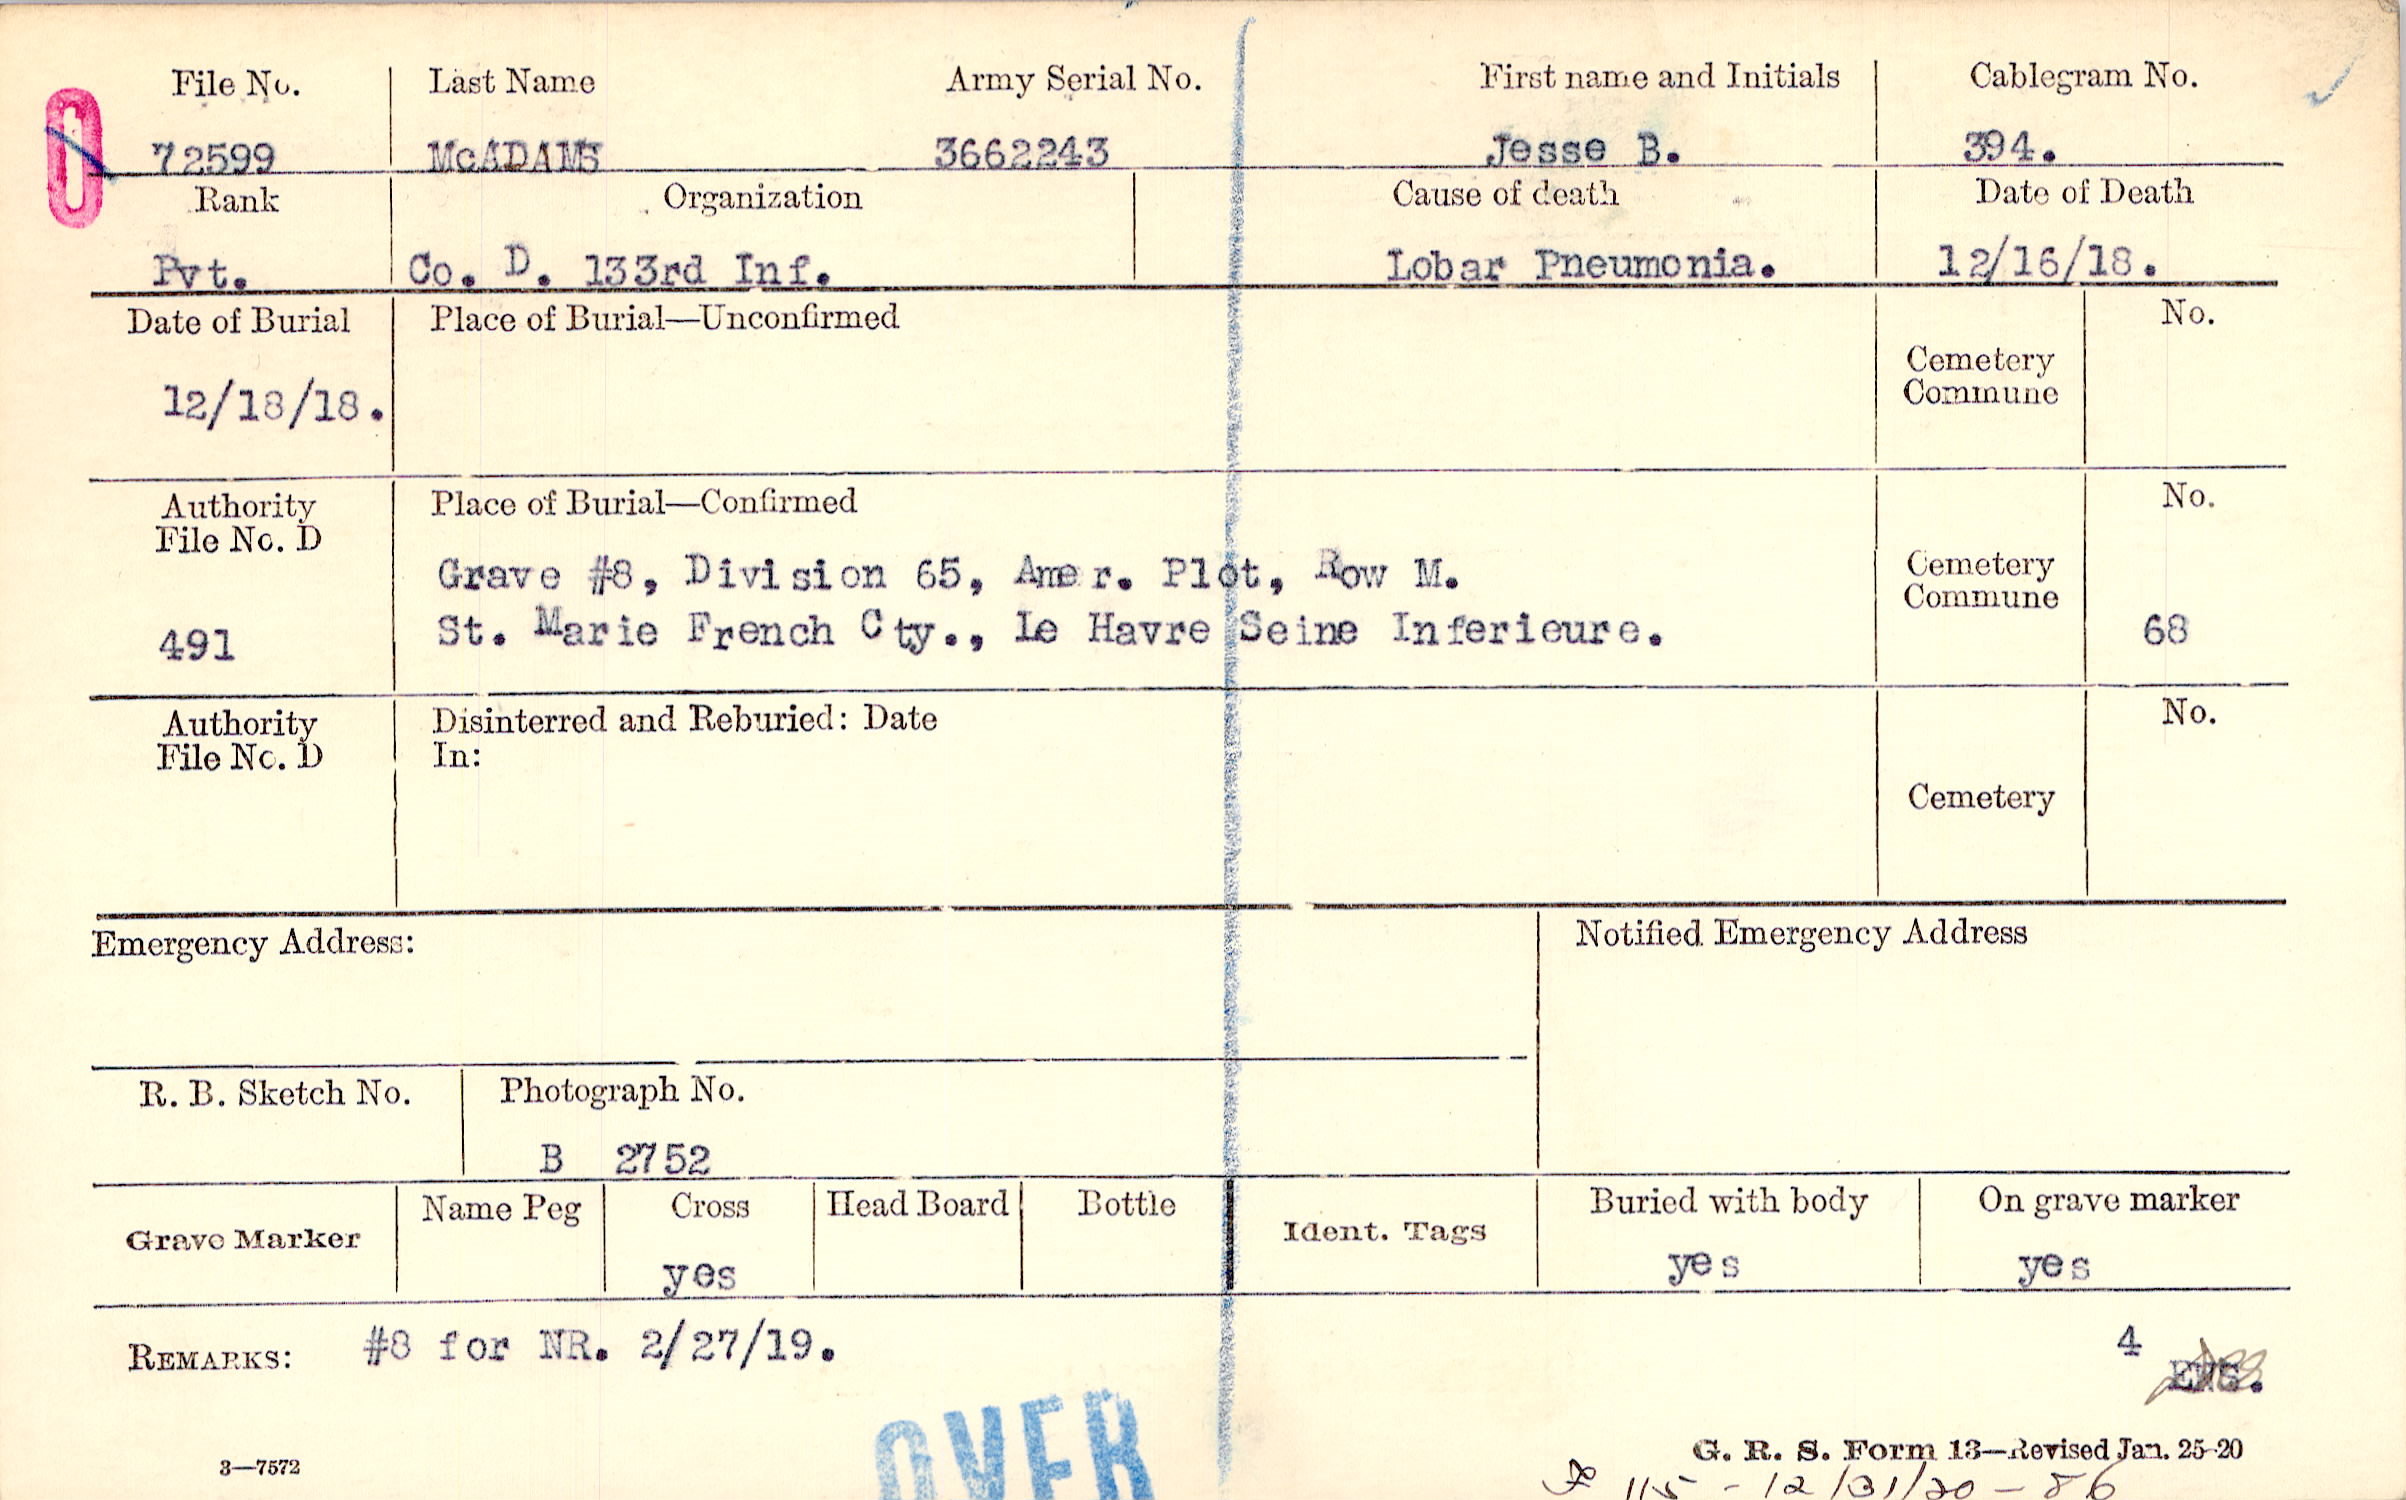 File No. Last Name Army Serial No. First name and Initials Cablegram No.
72599 McADAMS 3662243 Jesse B. 394.
Rank Organization Cause of death Date of Death
Pvt. Co. D. 133rd Inf. Lobar Pneumonia. 12/16/18.
Date of Burial Place of Burial—Unconfirmed No.
Cemetery
Commune
12/18/18.
Authority Place of Burial—Confirmed No.
File No. D
Grave #8, Division 65, Amer. Plot, Row M. Cemetery
Commune
491 St. Marie French Cty., Le Havre Seine Inferieure. 68
Authority Disinterred and Reburied: Date No.
File No. D In:
Cemetery
Emergency Address: Notified Emergency Address
R. B. Sketch No. Photograph No.
B 2752
Grave Marker Name Peg Cross Head Board Bottle Ident. Tags Buried with body On grave marker
yes yes yes
REMARKS: #8 for NR. 2/27/19. 4
OVER
3—7572 G. R. S. Form 13—Revised Jan. 25-20
115 - 12/31/20 - 86